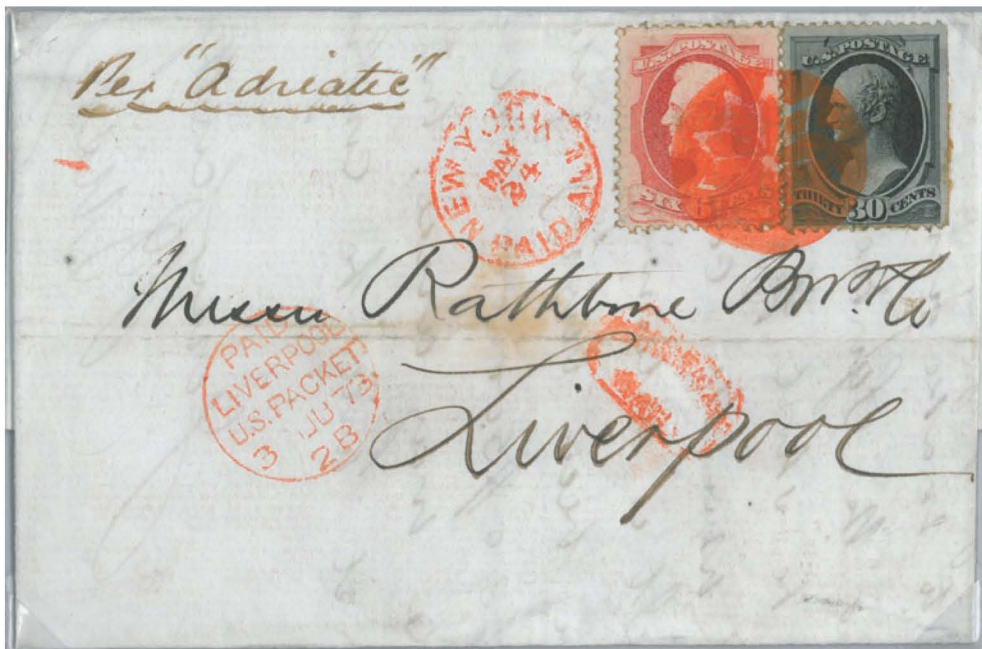 Per "Adriatic"
U.S. POSTAGE
SIX CENTS
U.S. POSTAGE
THIRTY 30 CENTS
NEW YORK
MAY
24
PAID ALL
Messrs Rathbone Bros. & Co
Liverpool
PAID
LIVERPOOL
U.S. PACKET
3 JU 73
2 B